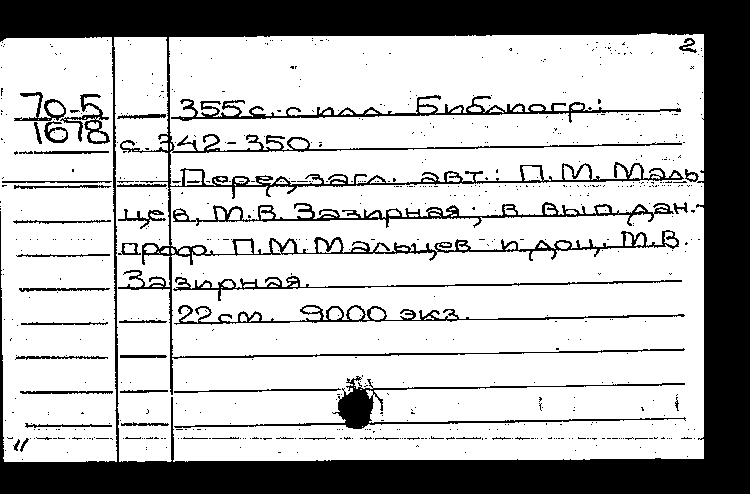 2
70-5
1678
355 с. с илл. Библиогр.:
с. 342-350.
Перед загл. авт.: П.М. Маль-
цев, М.В. Зазирная; в вып. дан.-
проф. П.М. Мальцев и доц. М.В.
Зазирная.
22 см. 9000 экз.
11